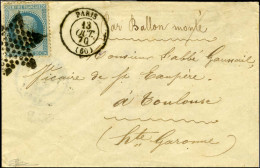 PARIS
13
OCT.
70
(60)
Par Ballon monté
Monsieur l'abbé
Vicaire de St
à Toulouse
(Hte Garonne)